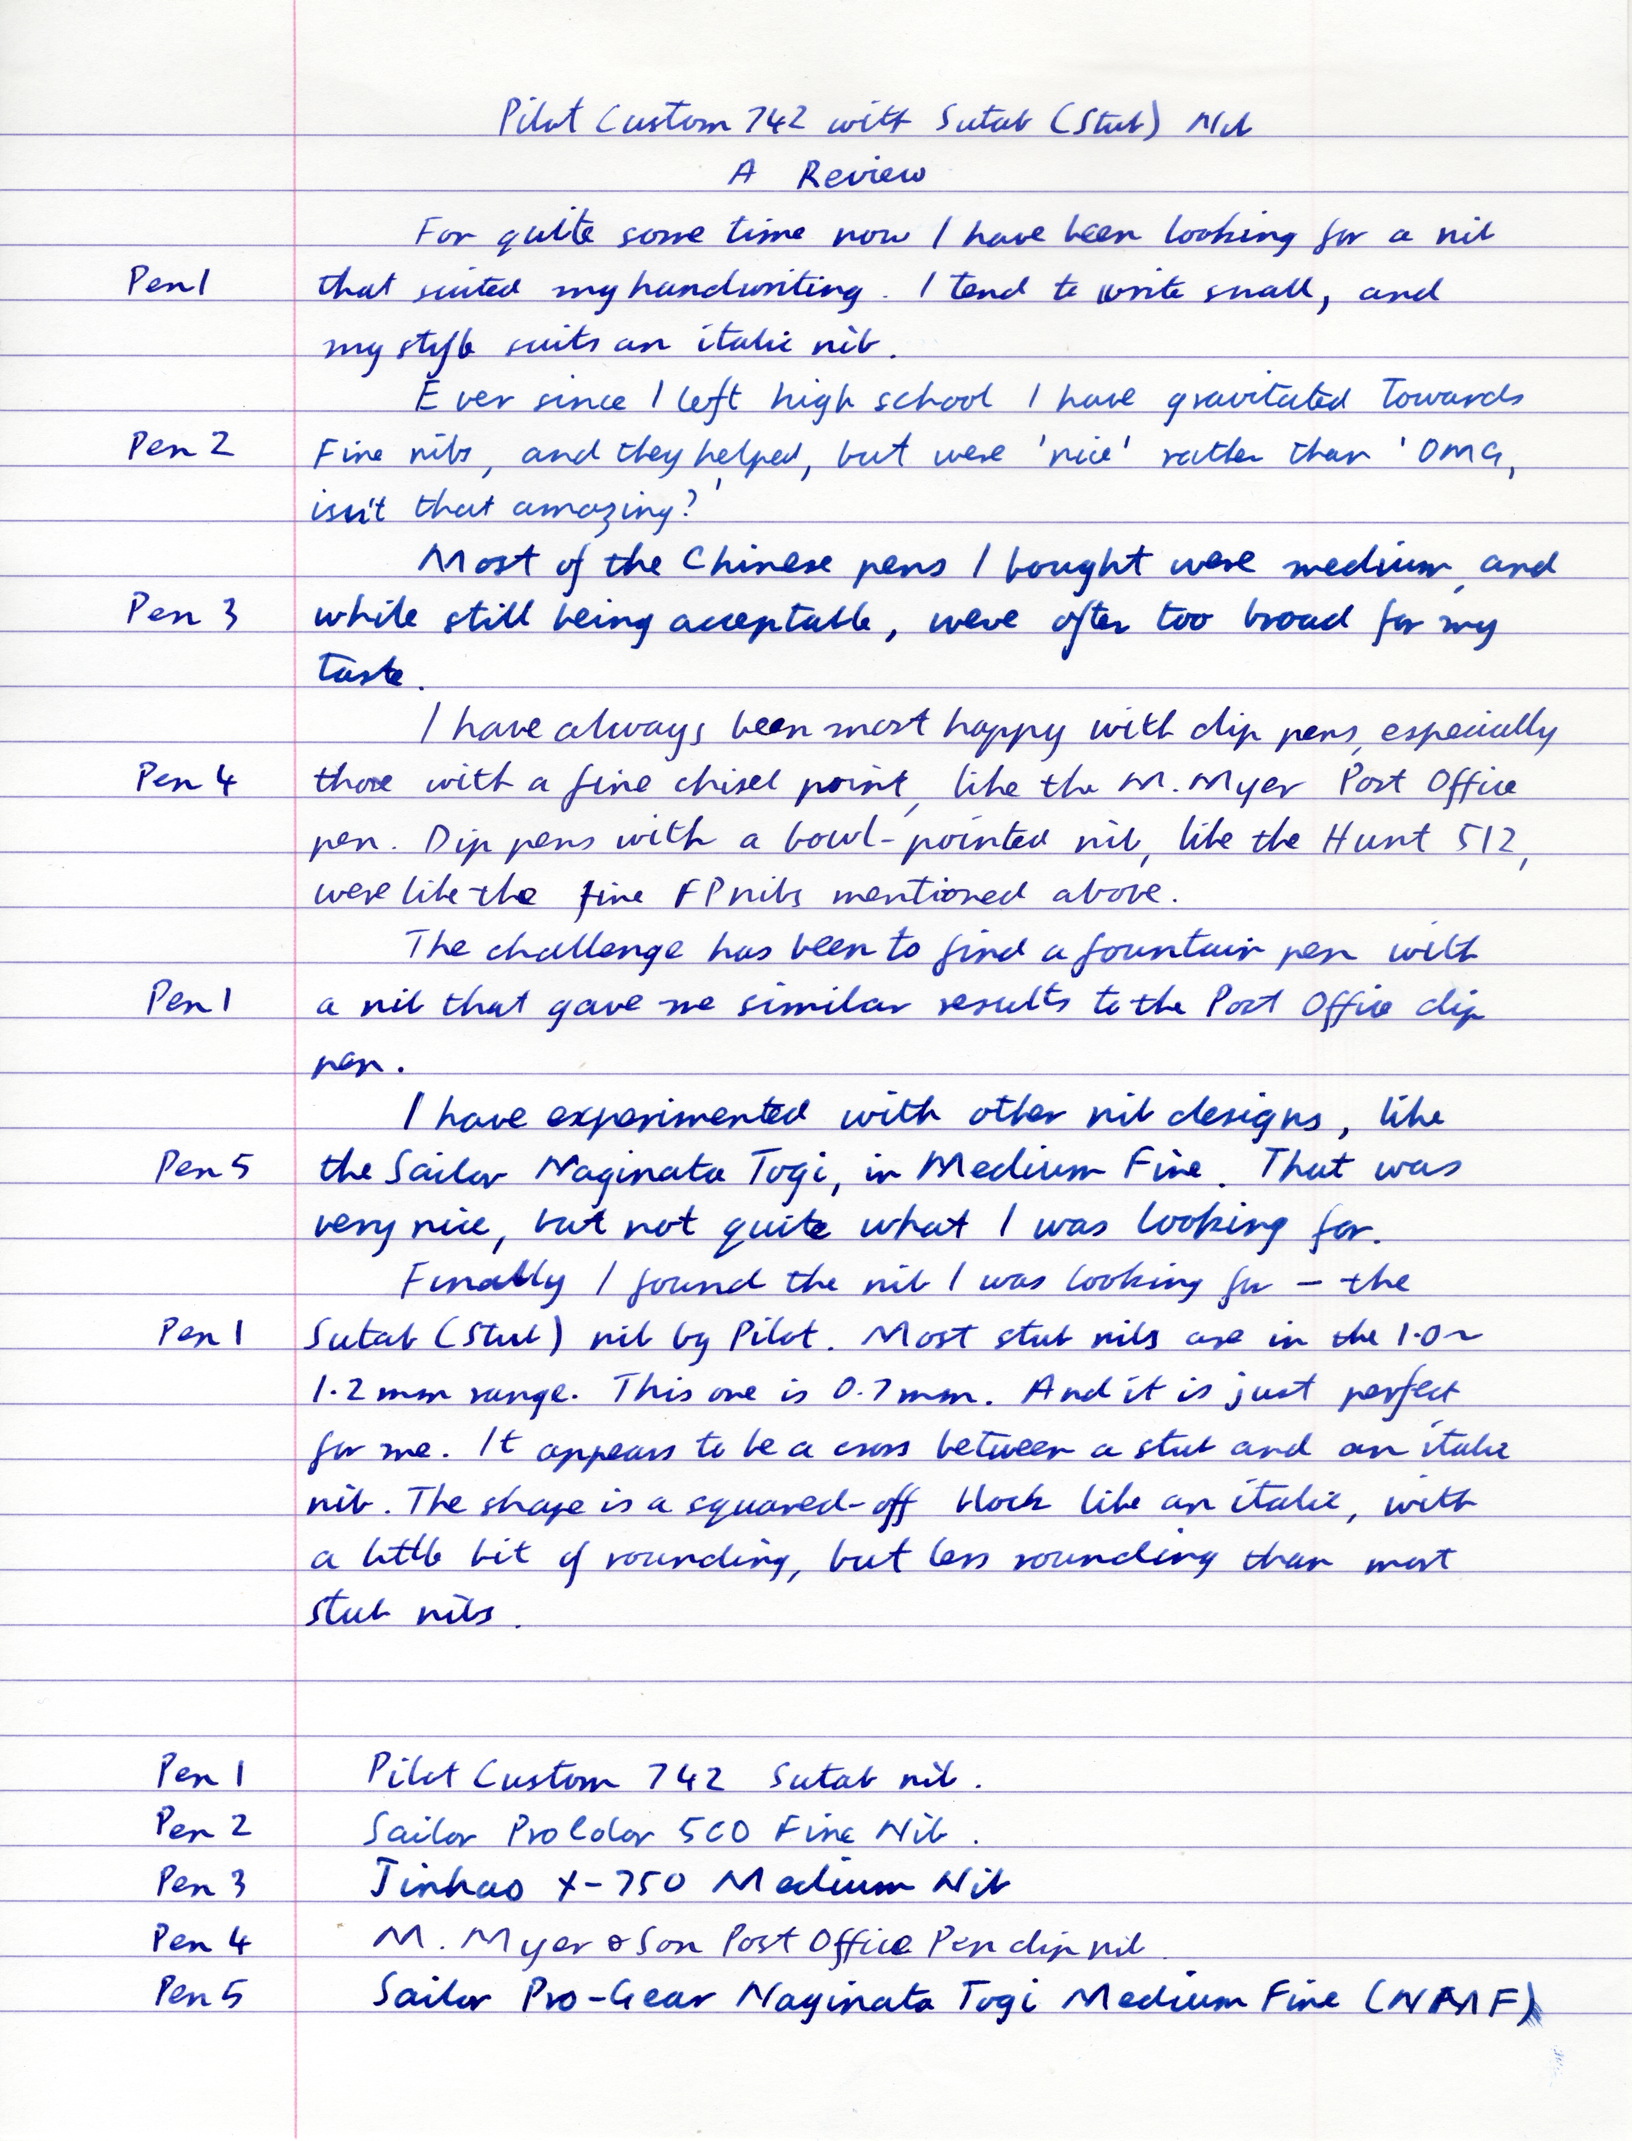 Pilot Custom 742 with Sutab (Stub) Nib
A Review
For quite some time now I have been looking for a nib
Pen 1 that suited my handwriting. I tend to write small, and
my style suits an italic nib.
Ever since I left high school I have gravitated towards
Pen 2 Fine nibs, and they helped, but were 'nice' rather than 'OMG,
isn't that amazing?'
Most of the Chinese pens I bought were medium, and
Pen 3 while still being acceptable, were often too broad for my
taste.
I have always been most happy with dip pens, especially
Pen 4 those with a fine chisel point, like the M. Myer Post Office
pen. Dip pens with a bowl-pointed nib, like the Hunt 512,
were like the fine FP nibs mentioned above.
The challenge has been to find a fountain pen with
Pen 1 a nib that gave me similar results to the Post Office dip
pen.
I have experimented with other nib designs, like
Pen 5 the Sailor Naginata Togi, in Medium Fine. That was
very nice, but not quite what I was looking for.
Finally I found the nib I was looking for – the
Pen 1 Sutab (Stub) nib by Pilot. Most stub nibs are in the 1.0~
1.2mm range. This one is 0.7mm. And it is just perfect
for me. It appears to be a cross between a stub and an italic
nib. The shape is a squared-off block like an italic, with
a little bit of rounding, but less rounding than most
stub nibs.
Pen 1 Pilot Custom 742 Sutab nib.
Pen 2 Sailor ProColor 500 Fine Nib.
Pen 3 Jinhao X-750 Medium Nib
Pen 4 M. Myer & Son Post Office Pen dip nib.
Pen 5 Sailor Pro-Gear Naginata Togi Medium Fine (NMF)